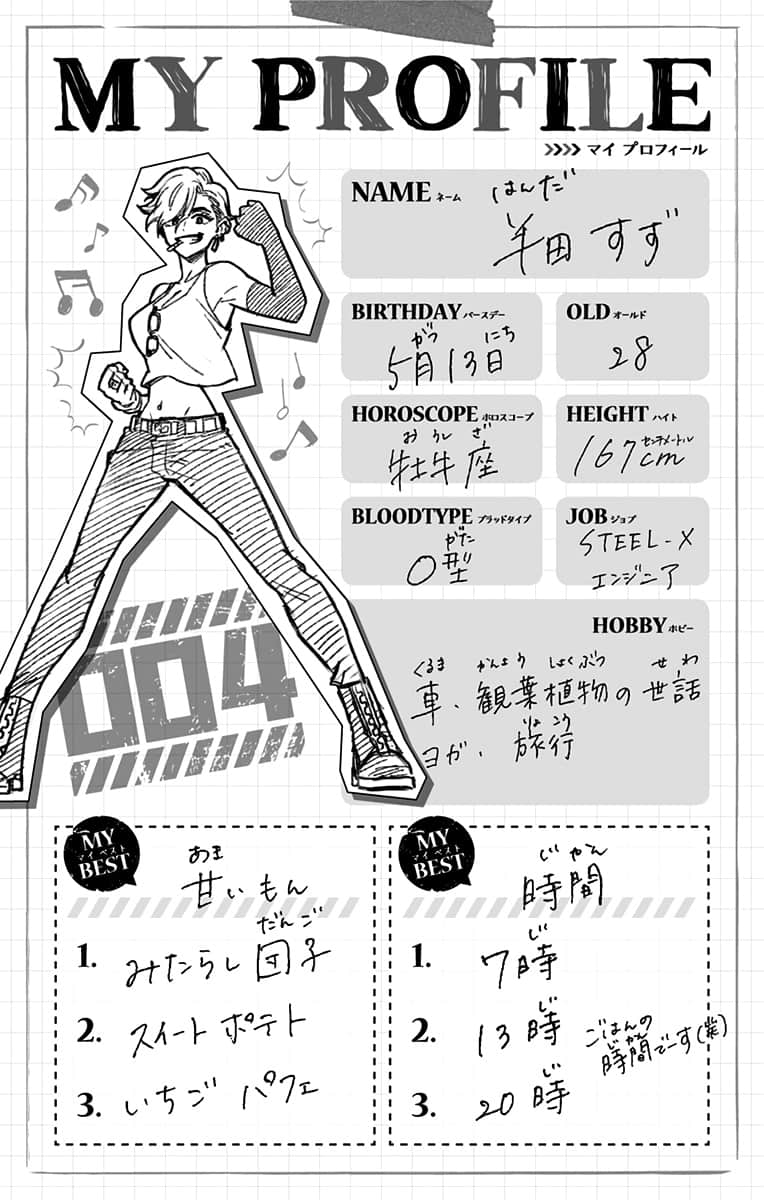 MY PROFILE
>>>> マイ プロフィール
NAME ネーム
はんだ
半田 すず
BIRTHDAY バースデー
がつ にち
5月13日
OLD オールド
28
HOROSCOPE ホロスコープ
おうしざ
牡牛座
HEIGHT ハイト
センチメートル
167cm
BLOODTYPE ブラッドタイプ
がた
O型
JOB ジョブ
STEEL-X
エンジニア
HOBBY ホビー
くるま かんよう しょくぶつ せわ
車、観葉植物の世話
りょこう
ヨガ、旅行
004
MY
マイ ベスト
BEST
あま
甘いもん
だんご
1. みたらし団子
2. スイートポテト
3. いちごパフェ
MY
マイ ベスト
BEST
じかん
時間
じ
1. 7時
じ
2. 13時
ごはんの
じかん
時間でーす(笑)
じ
3. 20時